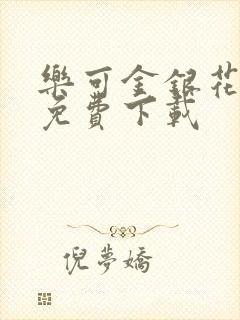 樂可金銀花
免費下載
倪夢嬌